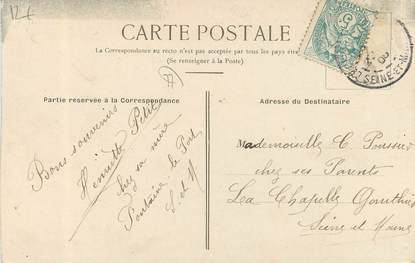 12€
CARTE POSTALE
La Correspondance au recto n'est pas acceptée par tous les pays étra
(Se renseigner à la Poste)
Partie réservée à la Correspondance
Bons souvenirs
Henriette Petit
chez sa mère
Fontaine le Port
S. et M
Adresse du Destinataire
Mademoiselle C. Poussier
chez ses Parents
La Chapelle Gauthier
Seine et Marne
SEINE-ET-M